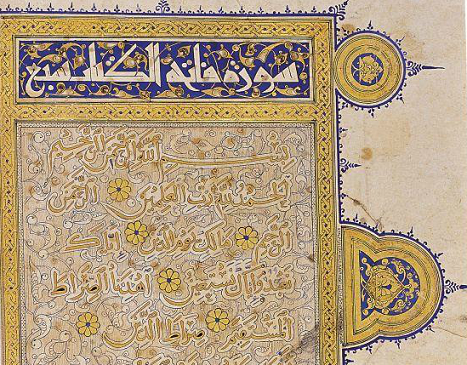 سورة فاتحة الكتاب سبع
بسم الله الرحمن الرحيم
الحمد لله رب العلمين الرحمن
الرحيم ملك يوم الدين إياك
نعبد وإياك نستعين اهدنا الصراط
المستقيم صراط الذين